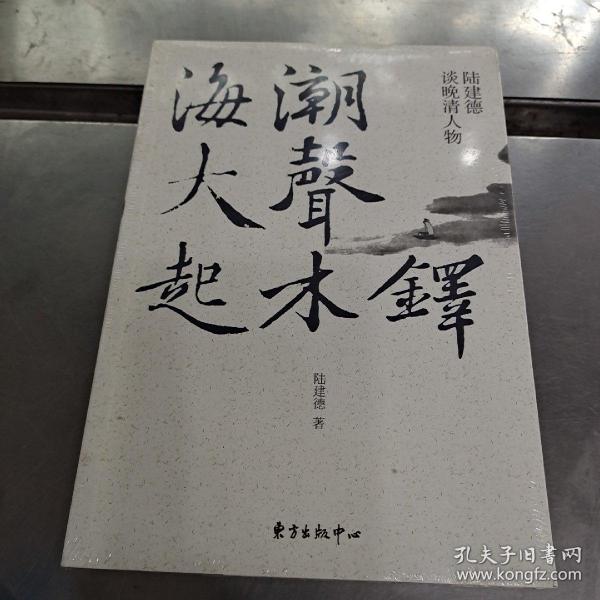 海潮
大聲
起木鐸
陆建德
谈晚清人物
陆建德 著
東方出版中心
孔夫子旧书网
www.kongfz.com